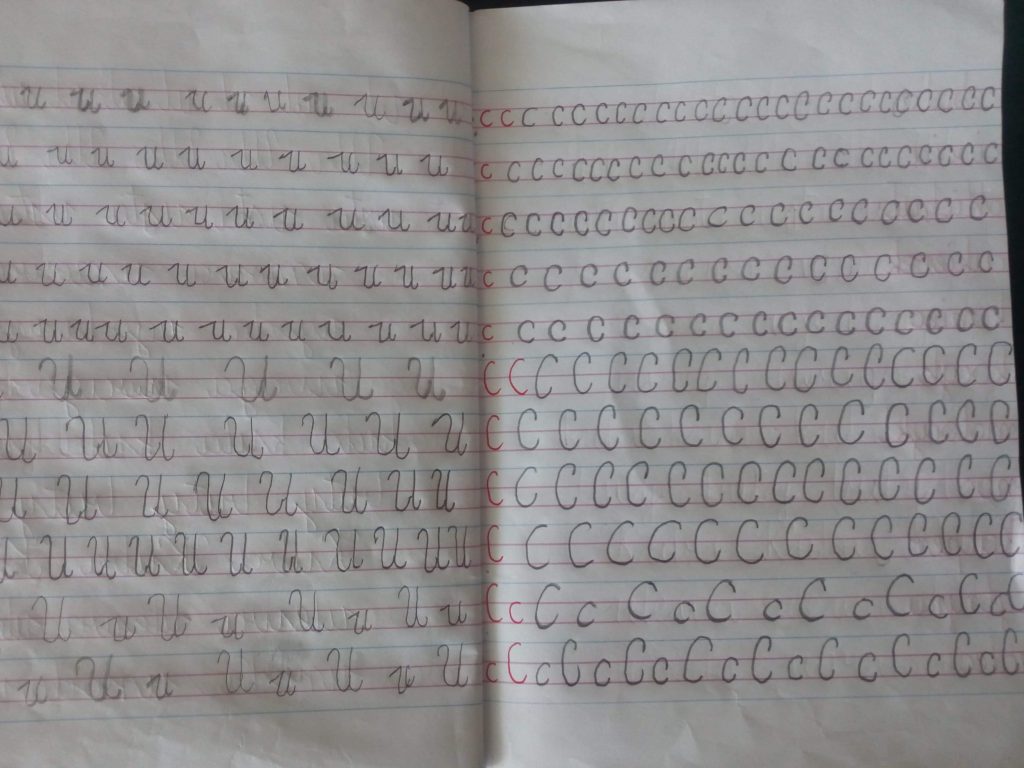 u u u u u u u u u u
u u u u u u u u u u
u u u u u u u u u u u
u u u u u u u u u u u u
u u u u u u u u u u u u
U U U U U
U U U U U U U
U U U U U U U U
U U U U U U U U U U U
U u U u U u U u
u U u U u U u U
c c c c c c c c c c c c c c c c c c c c c c c c c
c c c c c c c c c c c c c c c c c c c c c c c
c c c c c c c c c c c c c c c c c c c c
c c c c c c c c c c c c c c c c
c c c c c c c c c c c c c c c c c
C C C C C C C C C C C C C C C C C
C C C C C C C C C C C C C C
C C C C C C C C C C C C C C C
C C C C C C C C C C C C C C
C c C c C c C c C c C c C c C
c C c C c C c C c C c C c C c C c C